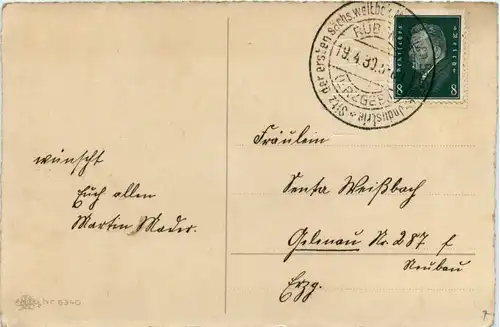 Sitz der ersten Sächs. weltbe
Industrie
19.4.30.
(ERZGEB.)
Deutsches Reich
8 8
wünscht
Euch allen
Martin Mader.
Fräulein
Senta Weißbach
Gelenau Nr. 287 f
Neubau
Erzg.
nr 6340